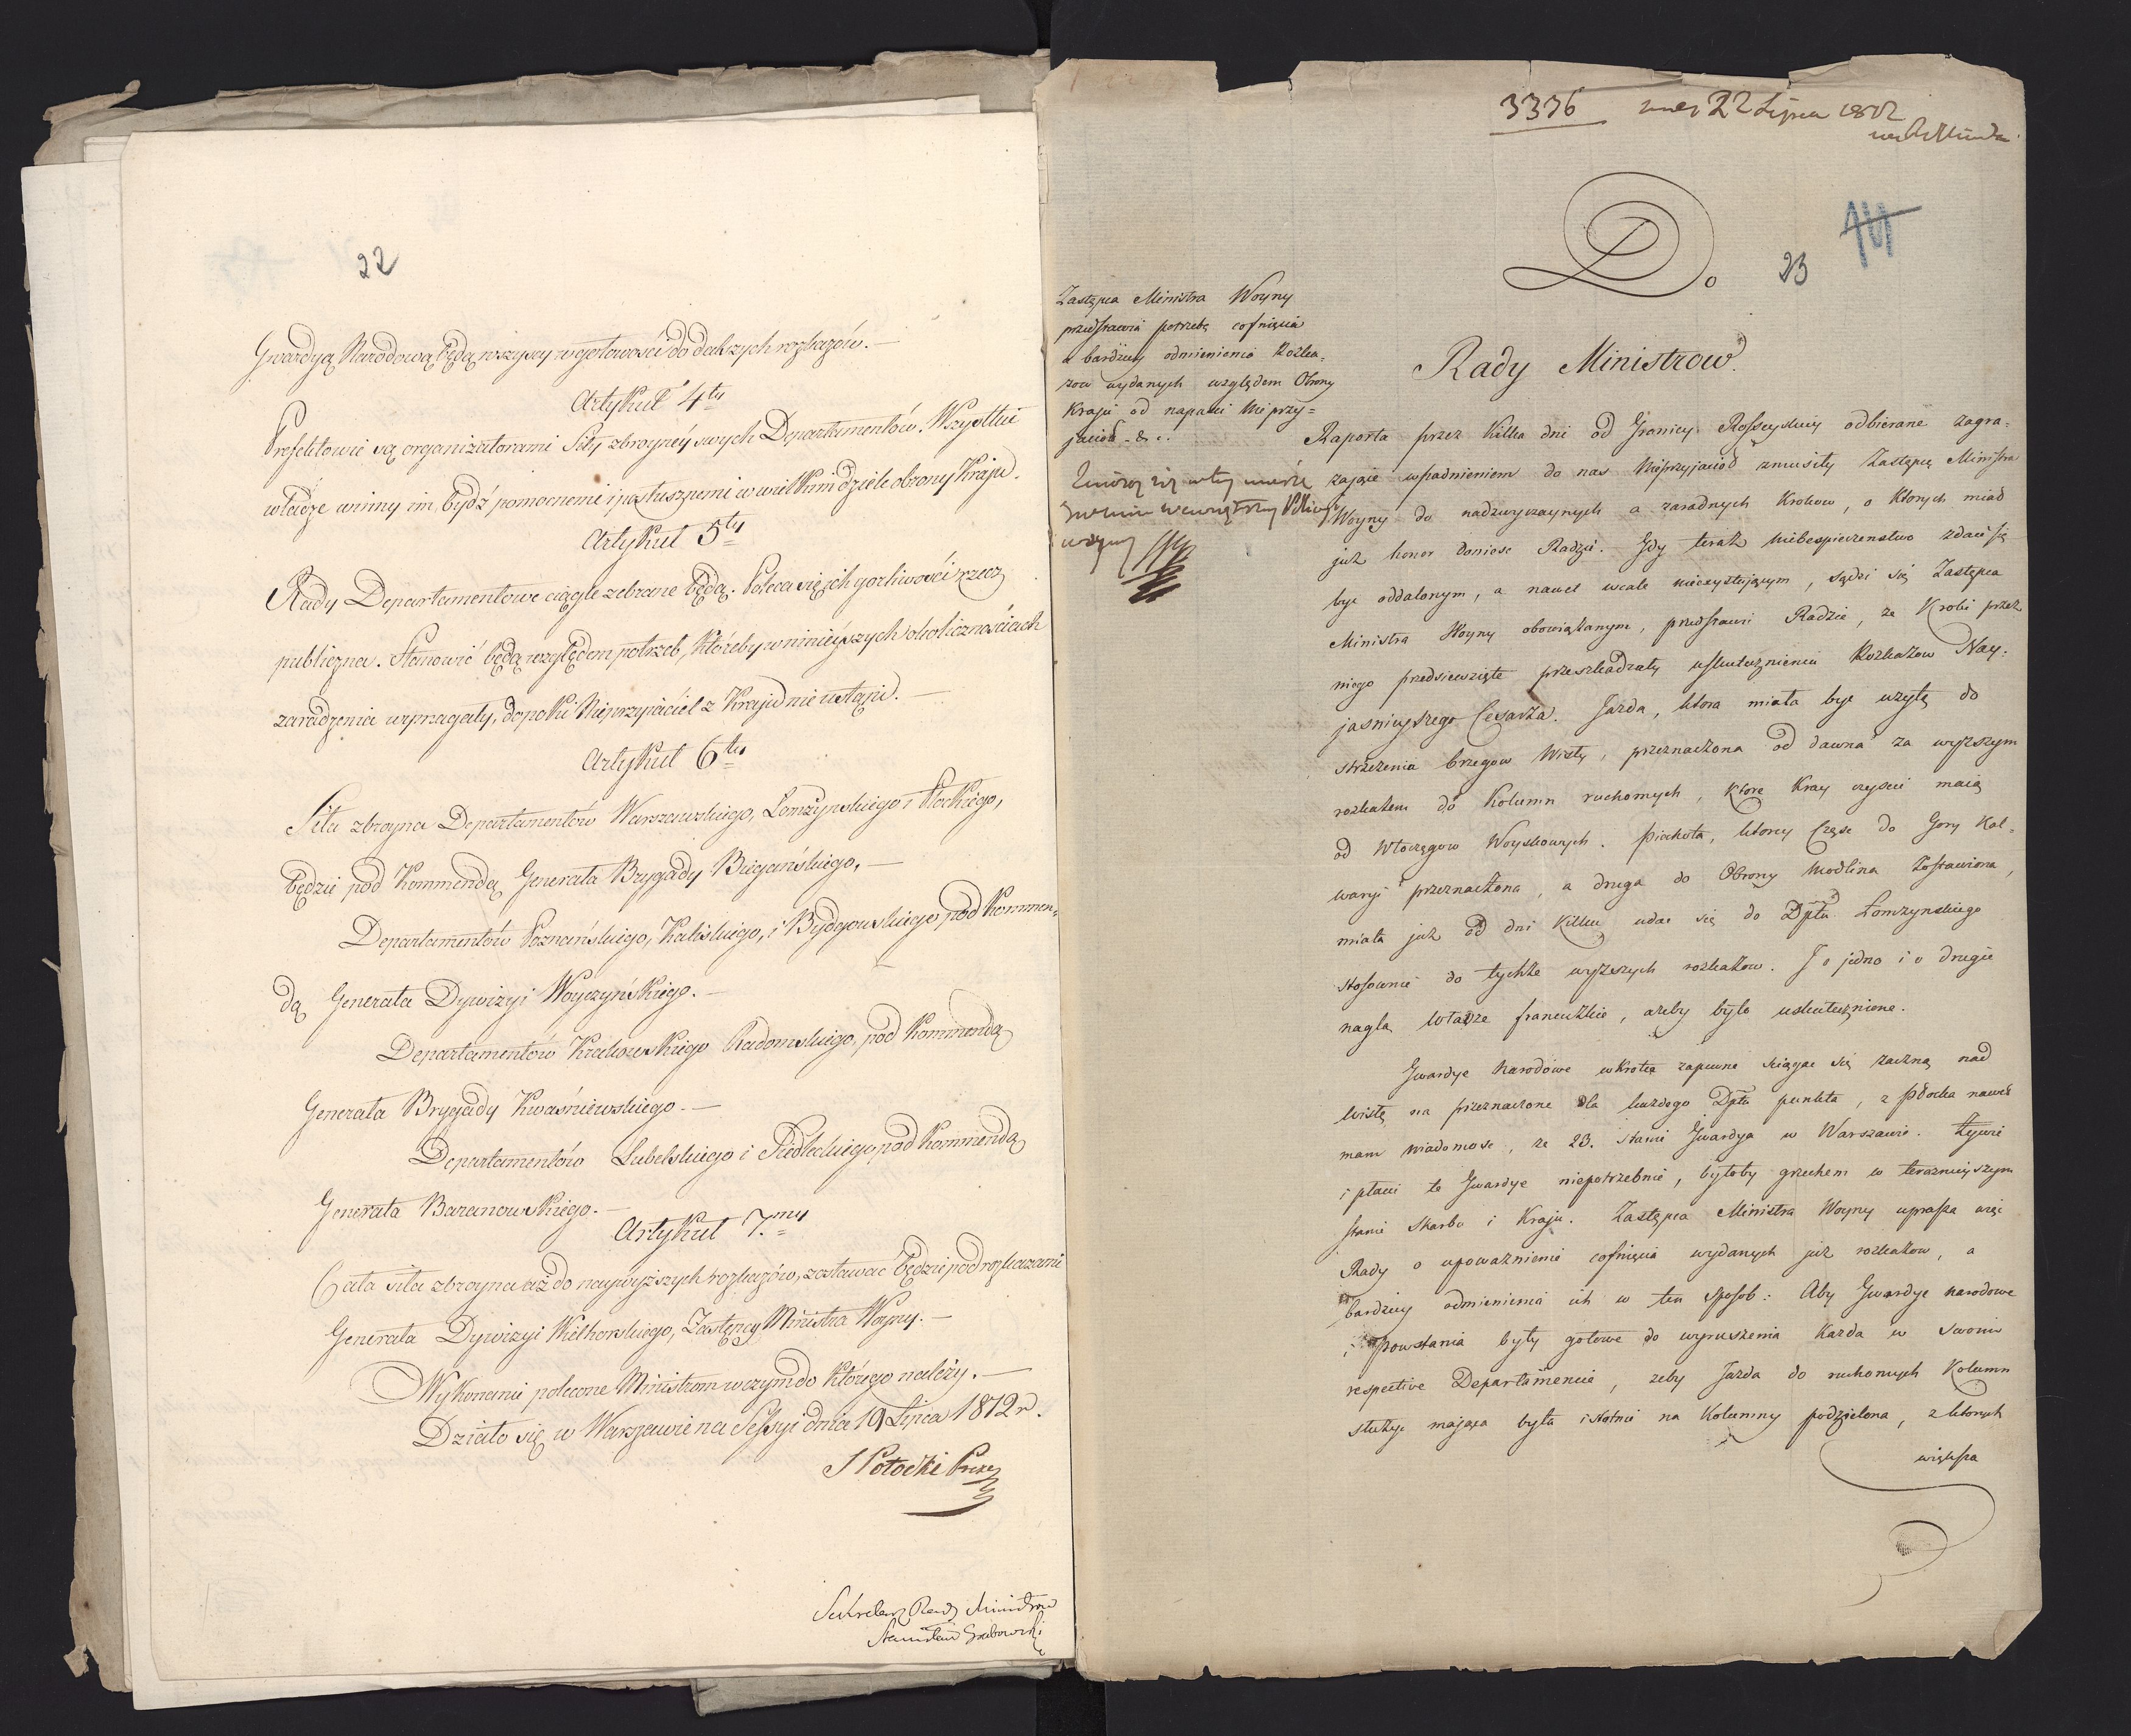 22
Gwardyą Narodową będą wszyscy w gotowości do dalszych rozkazów. —
Artykuł 4ty
Prefektowie są organizatorami Siły zbroyney swych Departamentów. Wszystkie
władze winny im bydź pomocnemi i posłusznemi w wielkim dziele obrony Kraju.
Artykuł 5ty
Rady Departamentowe ciągle zebrane będą. Poleca się ich gorliwości rzecz
publiczna. Stanowić będą względem potrzeb, któreby w ninieyszych okolicznościach
zaradzenia wymagały, dopoki Nieprzyiaciel z Kraju nie ustąpi. —
Artykuł 6ty
Siła zbroyna Departamentów Warszawskiego, Łomżyńskiego i Płockiego,
będzie pod Kommendą Generała Brygady Biegańskiego, —
Departamentów Poznańskiego, Kaliskiego, i Bydgowskiego pod Kommen-
dą Generała Dywizyi Woyczyńskiego. —
Departamentów Krakowskiego Radomskiego, pod Kommendą
Generała Brygady Kwaśniewskiego. —
Departamentów Lubelskiego i Siedleckiego pod Kommendą
Generała Baranowskiego. —
Artykuł 7.my
Cała siła zbroyna aż do naywyższych rozkazów, zostawać będzie pod rozkazami
Generała Dywizyi Wielhorskiego, Zastępcy Ministra Woyny. —
Wykonanie polecone Ministrom w czym do którego należy. —
Działo się w Warszawie na Sessyi dnia 19 Lipca 1812 r.
S Potocki Prezes
Sekretarz Rady Ministrow
Stanisław Grabowski
3336 22 Lipca 1812
23
Do
Rady Ministrow
Zastępca Ministra Woyny
przedstawia potrzebę cofnięcia
a bardziey odmienienia Rozka=
zow wydanych względem Obrony
Kraju od napaści Nieprzy=
jaciół &c.
Raporta przez Kilka dni od Granicy Rossyyskiey odbierane zagra=
zające wpadnieniem do nas Nieprzyjaciół zmusiły Zastępcę Ministra
Woyny do nadzwyczaynych a zaradnych Krokow, o Ktorych miał
już honor donieść Radzie. Gdy teraz niebespieczenstwo zdaie się
byc oddalonym, a nawet wcale nieexystującym, sądzi się Zastępca
Ministra Woyny obowiązanym, przedstawić Radzie, ze Kroki przez
niego przedsiewzięte przeszkadzały uskutecznieniu Rozkazow Nay=
jasnieyszego Cesarza. Jazda, ktora miała byc uzytą do
strzezenia brzegow Wisły, przeznaczona od dawna za wyzszym
rozkazem do Kolumn ruchomych, ktore Kray czyscić maią
od Włoczęgow Woyskowych. Piechota, ktorey Część do Gory Kal=
waryi przeznaczona, a druga do Obrony Modlina Zostawiona,
miała juz od dni Kilku udac się do Dptu Łomzynskiego
stosownie do tychze wyzszych rozkazow. I o jedno i o drugie
naglą Władze francuzkie, azeby było uskutecznione.
Gwardye narodowe wkrotce zapewne sciągac się zaczną nad
Wisłę na przeznaczone dla kazdego Dptu punkta, z Płocka nawet
mam wiadomosc, ze 23. stanie Gwardya w Warszawie. Zywic
i płacic te Gwardye niepotrzebnie, byłoby grzechem w teraznieyszym
stanie Skarbu i Kraju. Zastępca Ministra Woyny uprasza więc
Rady o upowaznienie cofnięcia wydanych juz rozkazow, a
bardziey odmienienia ich w ten sposob: Aby Gwardye narodowe
i Powstania były gotowe do wyruszenia Kazda w swoim
respective Departamencie, zeby Jazda do ruchomych Kolumn
słuzyc mająca była istotnie na Kolumny podzielona, z ktorych
większa